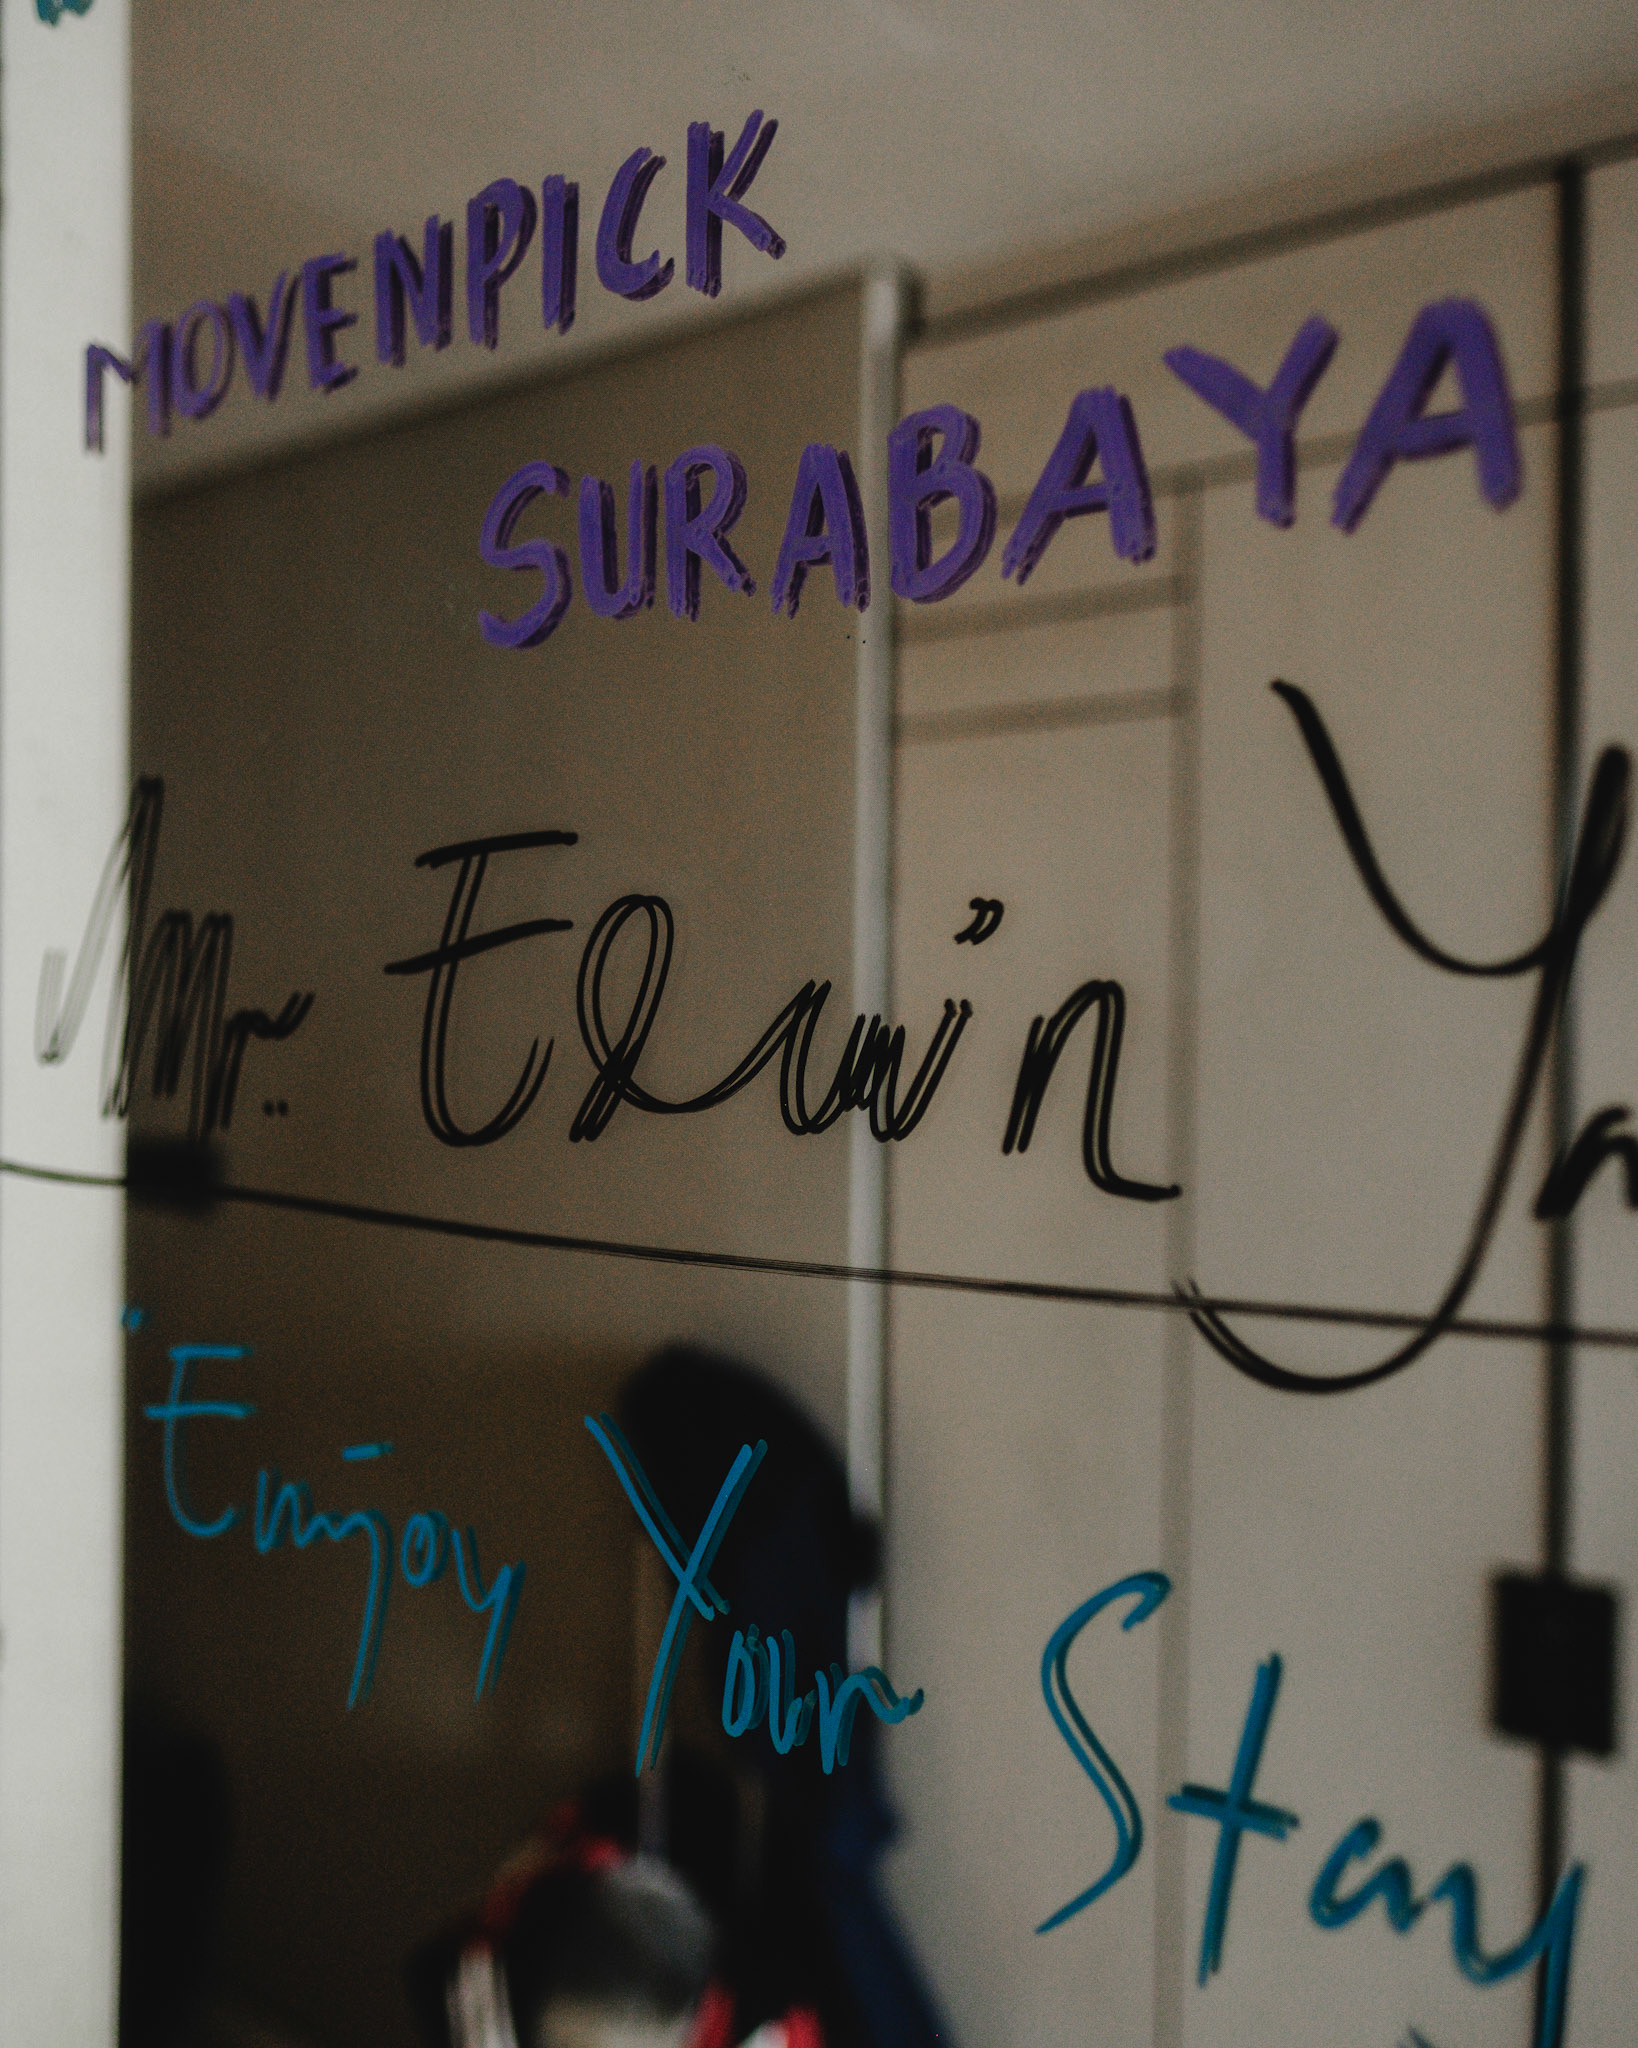 MOVENPICK
SURABAYA
Mr. Elwin
"Enjoy Your Stay